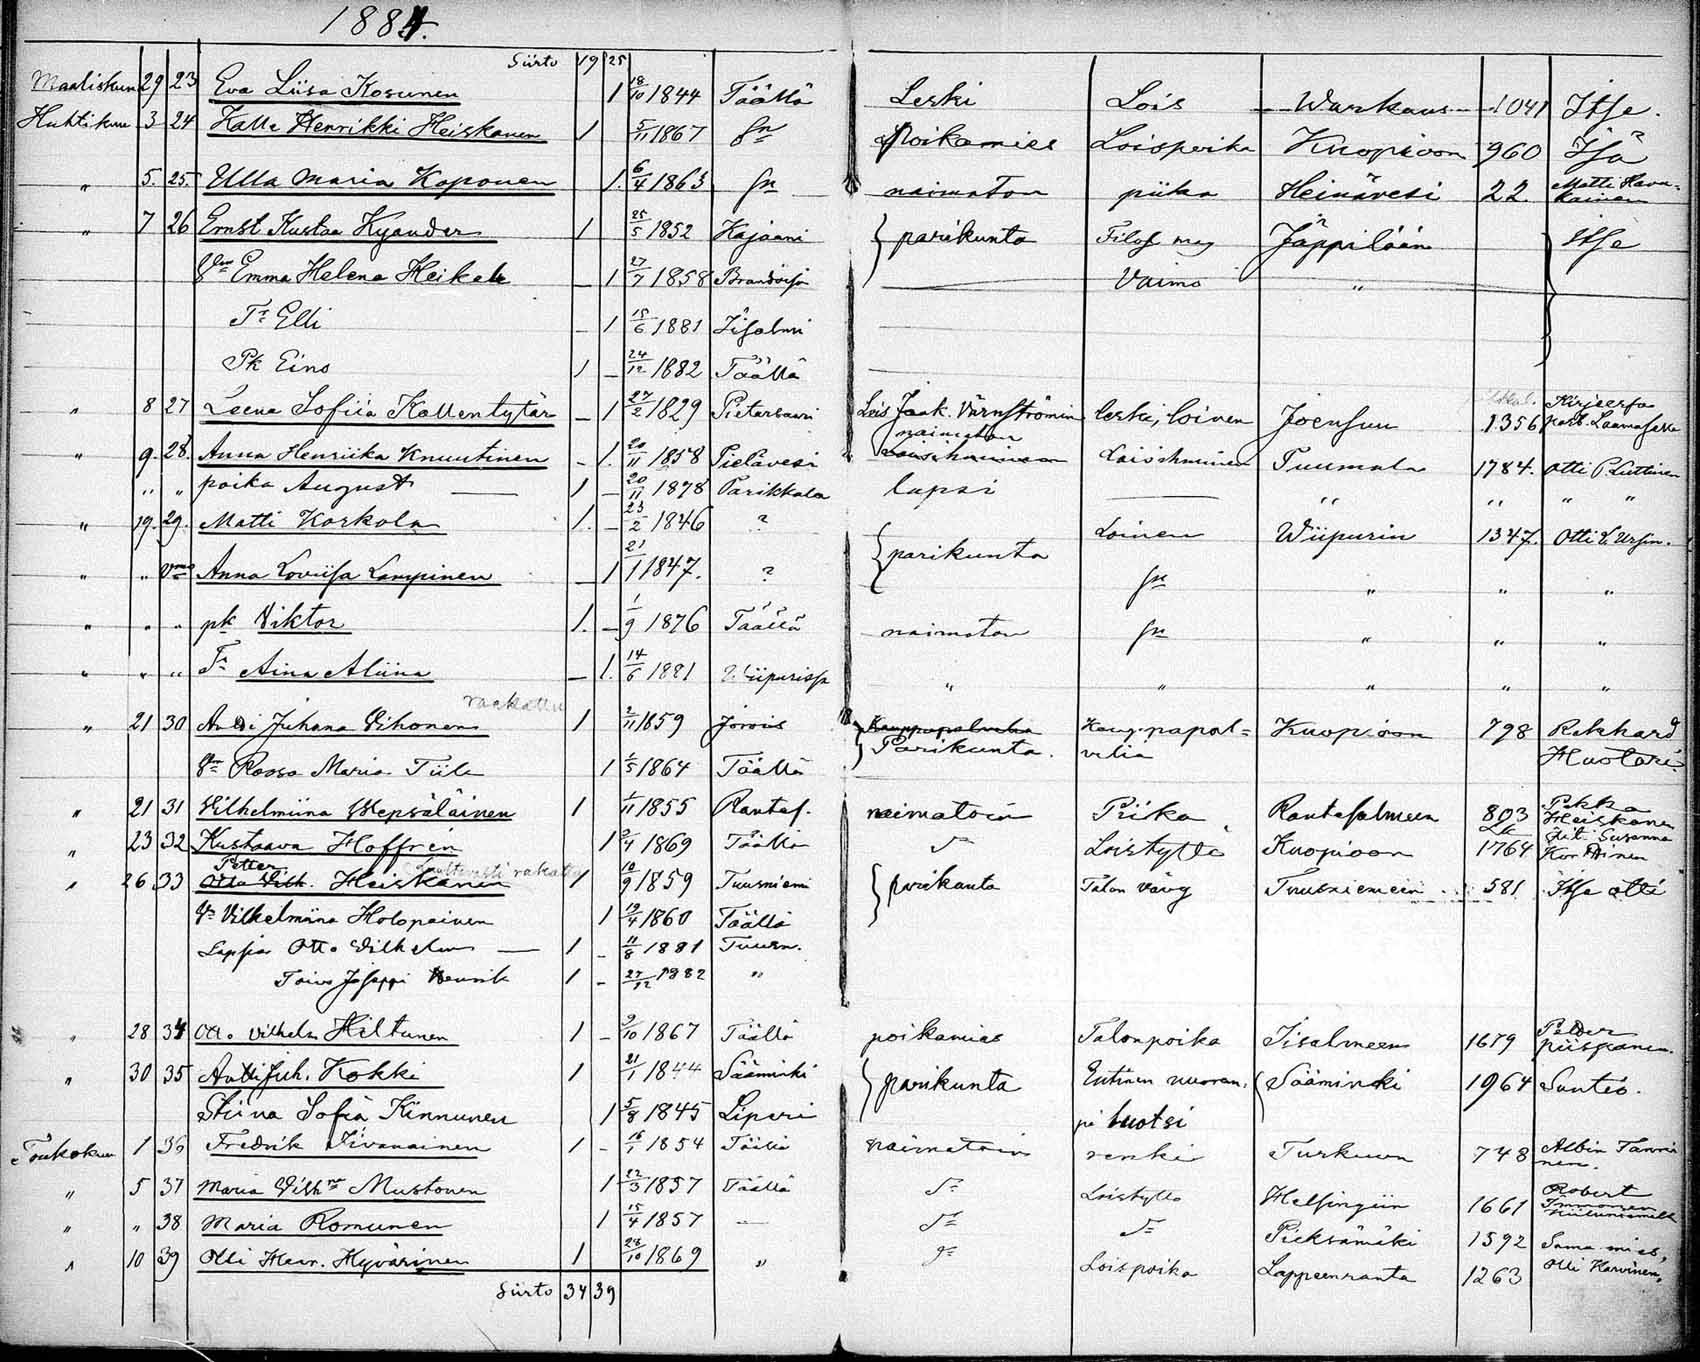 1884.
Siirto 19 25
Maaliskuu 29 23 Eva Liisa Kosunen 1 18/10 1844 Täällä Leski Lois Warkaus 1041 Itse.
Huhtikuu 3 24 Kalle Henrikki Heiskanen 1 5/11 1867 Sn poikamies Loispoika Kuopioon 960 Isä
" 5. 25. Ulla Maria Koponen 1. 6/4 1863 Sn naimaton piika Heinävesi 22. Matti Hava=
kainen
" 7 26 Ernst Kustaa Kyander 1 25/5 1852 Kajaani } parikunta Filos mag Jäppilään Itse
Vmo Emma Helena Heikel - 1 27/7 1858 Vaimo "
Tr Elli - 1 15/6 1881 Iisalmi
Pk Eino 1 - 24/12 1882 Täällä
" 8 27 Leena Sofiia Kallentytär - 1 27/2 1829 Pietarsaari Lois Jaak. Värnströmin leski, loinen Joensuu 1356 Kirjeessa
past.
naimaton
" 9. 28. Anna Henriika Knuutinen - 1. 20/11 1858 Pielavesi Loisihminen Tuumala 1784. Otti P. Luttinen
" " poika August 1 - 20/11 1878 Parikkala lapsi " " " "
" 19. 29. Matti Korkola 1. - 23/2 1846 ? { parikunta Loinen Wiipurin 1347. Otti L. Ursin.
" " Vmo Anna Loviisa Lampinen - 1 21/1 1847. ? Sn " " "
" " " pk Viktor 1. - 1/9 1876 Täällä naimaton Sn " " "
" " " Tr Aina Aliina - 1. 14/6 1881 Wiipurissa " " " " "
raakattu
" 21 30 Antti Juhana Vihonen 1 2/11 1859 Jorois Kauppapalvelia Kauppapal= Kuopioon 798 Rekhard
Parikunta. velia Huotari
Vm Roosa Maria Tiile 1 1/5 1864 Täällä
" 21 31 Vilhelmiina Wepsäläinen 1 1/11 1855 Rantas. naimatoin Piika Rantasalmeen 803 Pekka
Heiskanen
" 23 32 Kustaava Hoffrén 1 2/4 1869 Täällä Sn Loistyttö Kuopioon 1764 Äiti Susanna
Petter
" 26 33 Otto Vilh. Heiskanen 1 10/9 1859 Tuusniemi } parikunta Talon vävy Tuusniemein 581 Itse otti
Vr Vilhelmiina Holopainen 1 19/4 1860 Täällä
Lapsia Otto Vilhelm 1 - 11/8 1881 Tuusn.
Toivo Joseppi Henrik 1 - 27/12 1882 "
" 28 34 Otto Vilhelm Hiltunen 1 - 9/10 1867 Täällä poikamies Talonpoika Iisalmeen 1679 Petder
Piispanen.
" 30 35 Antti Juh. Kokki 1 21/1 1844 Sääminki } parikunta Entinen vuoran, Sääminki 1964 Suntio.
Stiina Sofia Kinnunen 1 5/8 1845 Liperi pi luotsi
Toukokuu 1 36 Fredrik Iivanainen 1 - 16/1 1854 Täällä naimatoin renki Turkuun 748 Albin Tanni
nen.
" 5 37 Maria Vilh:na Mustonen 1 22/3 1857 Täällä Sn Loistyttö Helsingiin 1661 Robert
Immonen
" " 38 Maria Romunen 1 15/4 1857 — Sn Sn Pieksämäki 1592 Sama mies,
" 10 39 Olli Henr. Hyvärinen 1 28/10 1869 " Sn Loispoika Lappeenranta 1263 Olli Karvinen,
Siirto 34 39